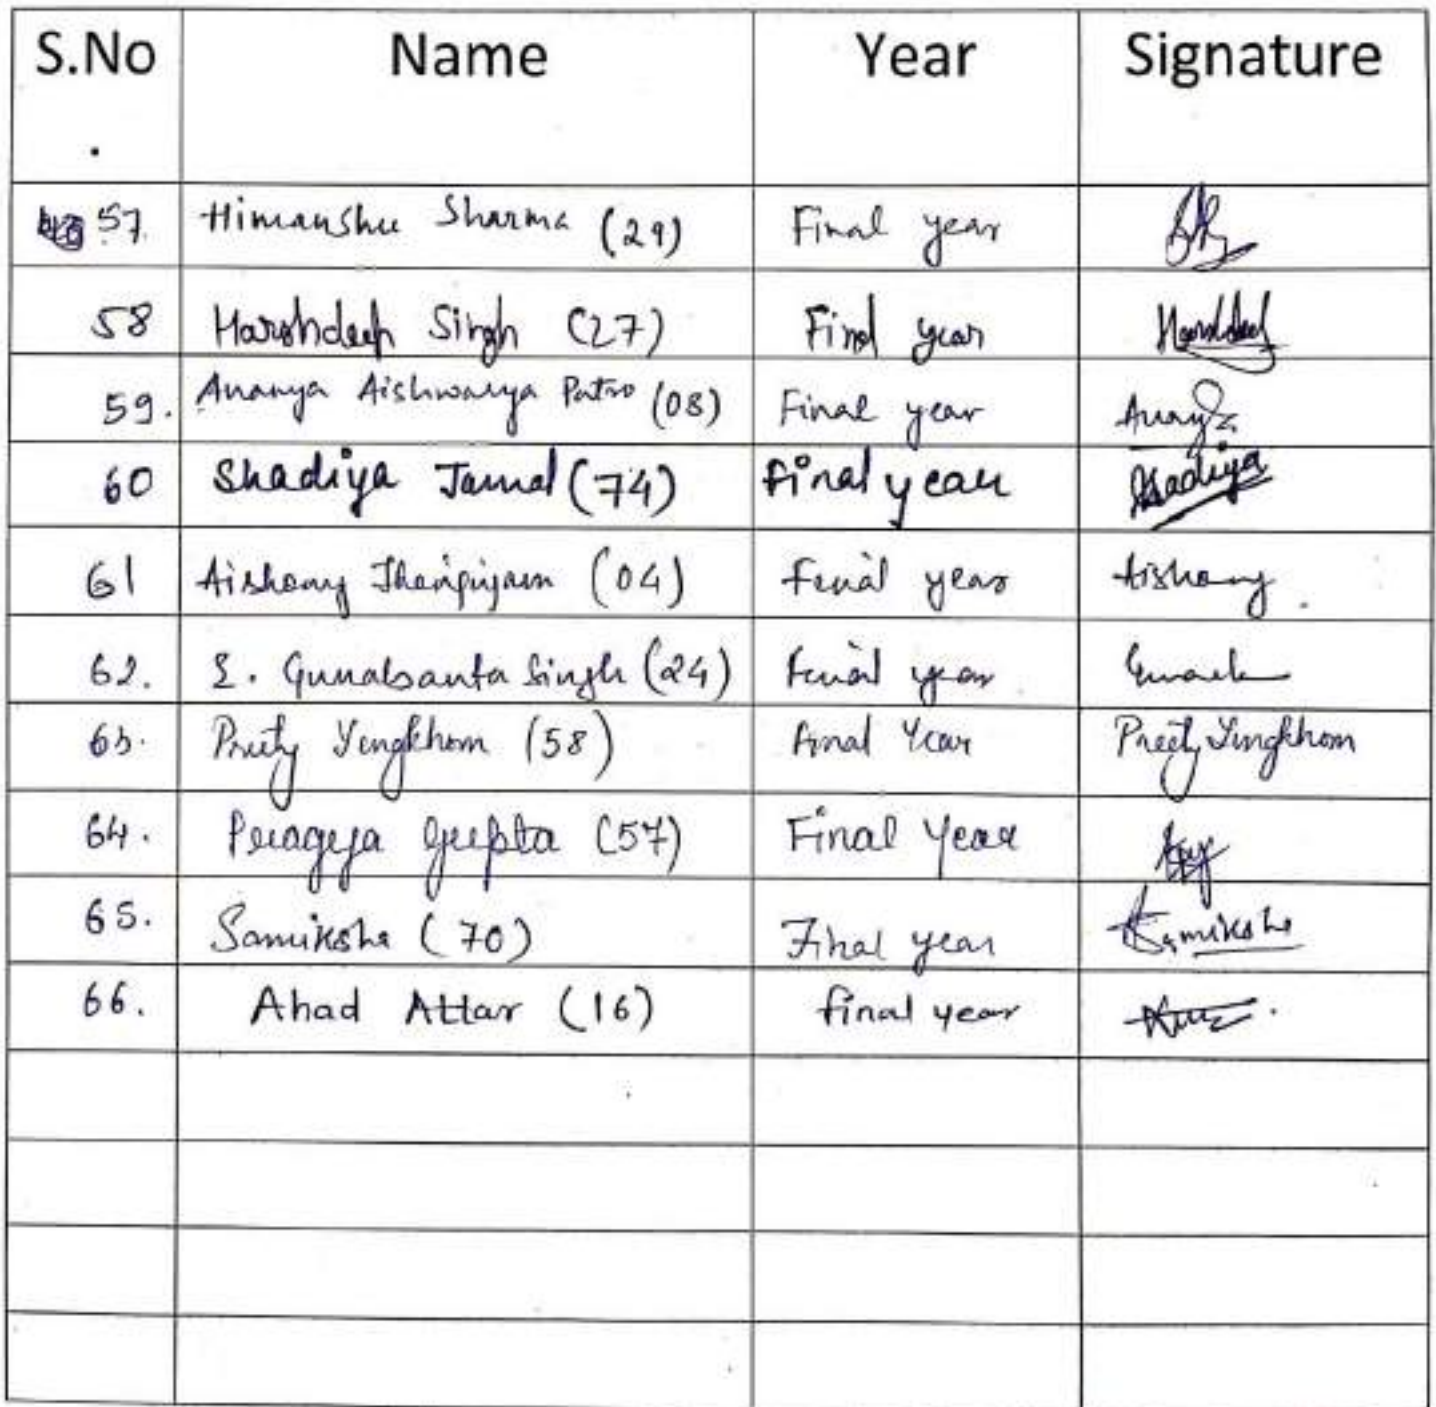 S.No Name Year Signature
.
57. Himanshu Sharma (29) Final year
58 Harshdeep Singh (27) Final year Harshdeep
59. Ananya Aishwarya Patro (08) Final year Ananya
60 Shadiya Jamal (74) final year Shadiya
61 Aishany (04) Final year Aishany
62. Gunabanta Singh (24) Final year
63. Preety Yengkhom (58) Final Year Preety Yengkhom
64. Pragya Gupta (57) Final Year
65. Samiksha (70) Final year Samiksha
66. Ahad Attar (16) final year